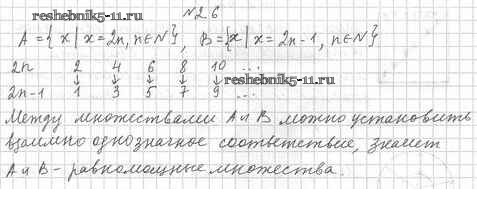 №26
reshebnik5-11.ru
A = { x | x = 2n, n ∈ N }, B = { x | x = 2n-1, n ∈ N }
2n 2 4 6 8 10 ...
↓ ↓ ↓ ↓ ↓ reshebnik5-11.ru
2n-1 1 3 5 7 9 ...
Между множествами A и B можно установить
взаимно однозначное соответствие, значит
A и B - равномощные множества.